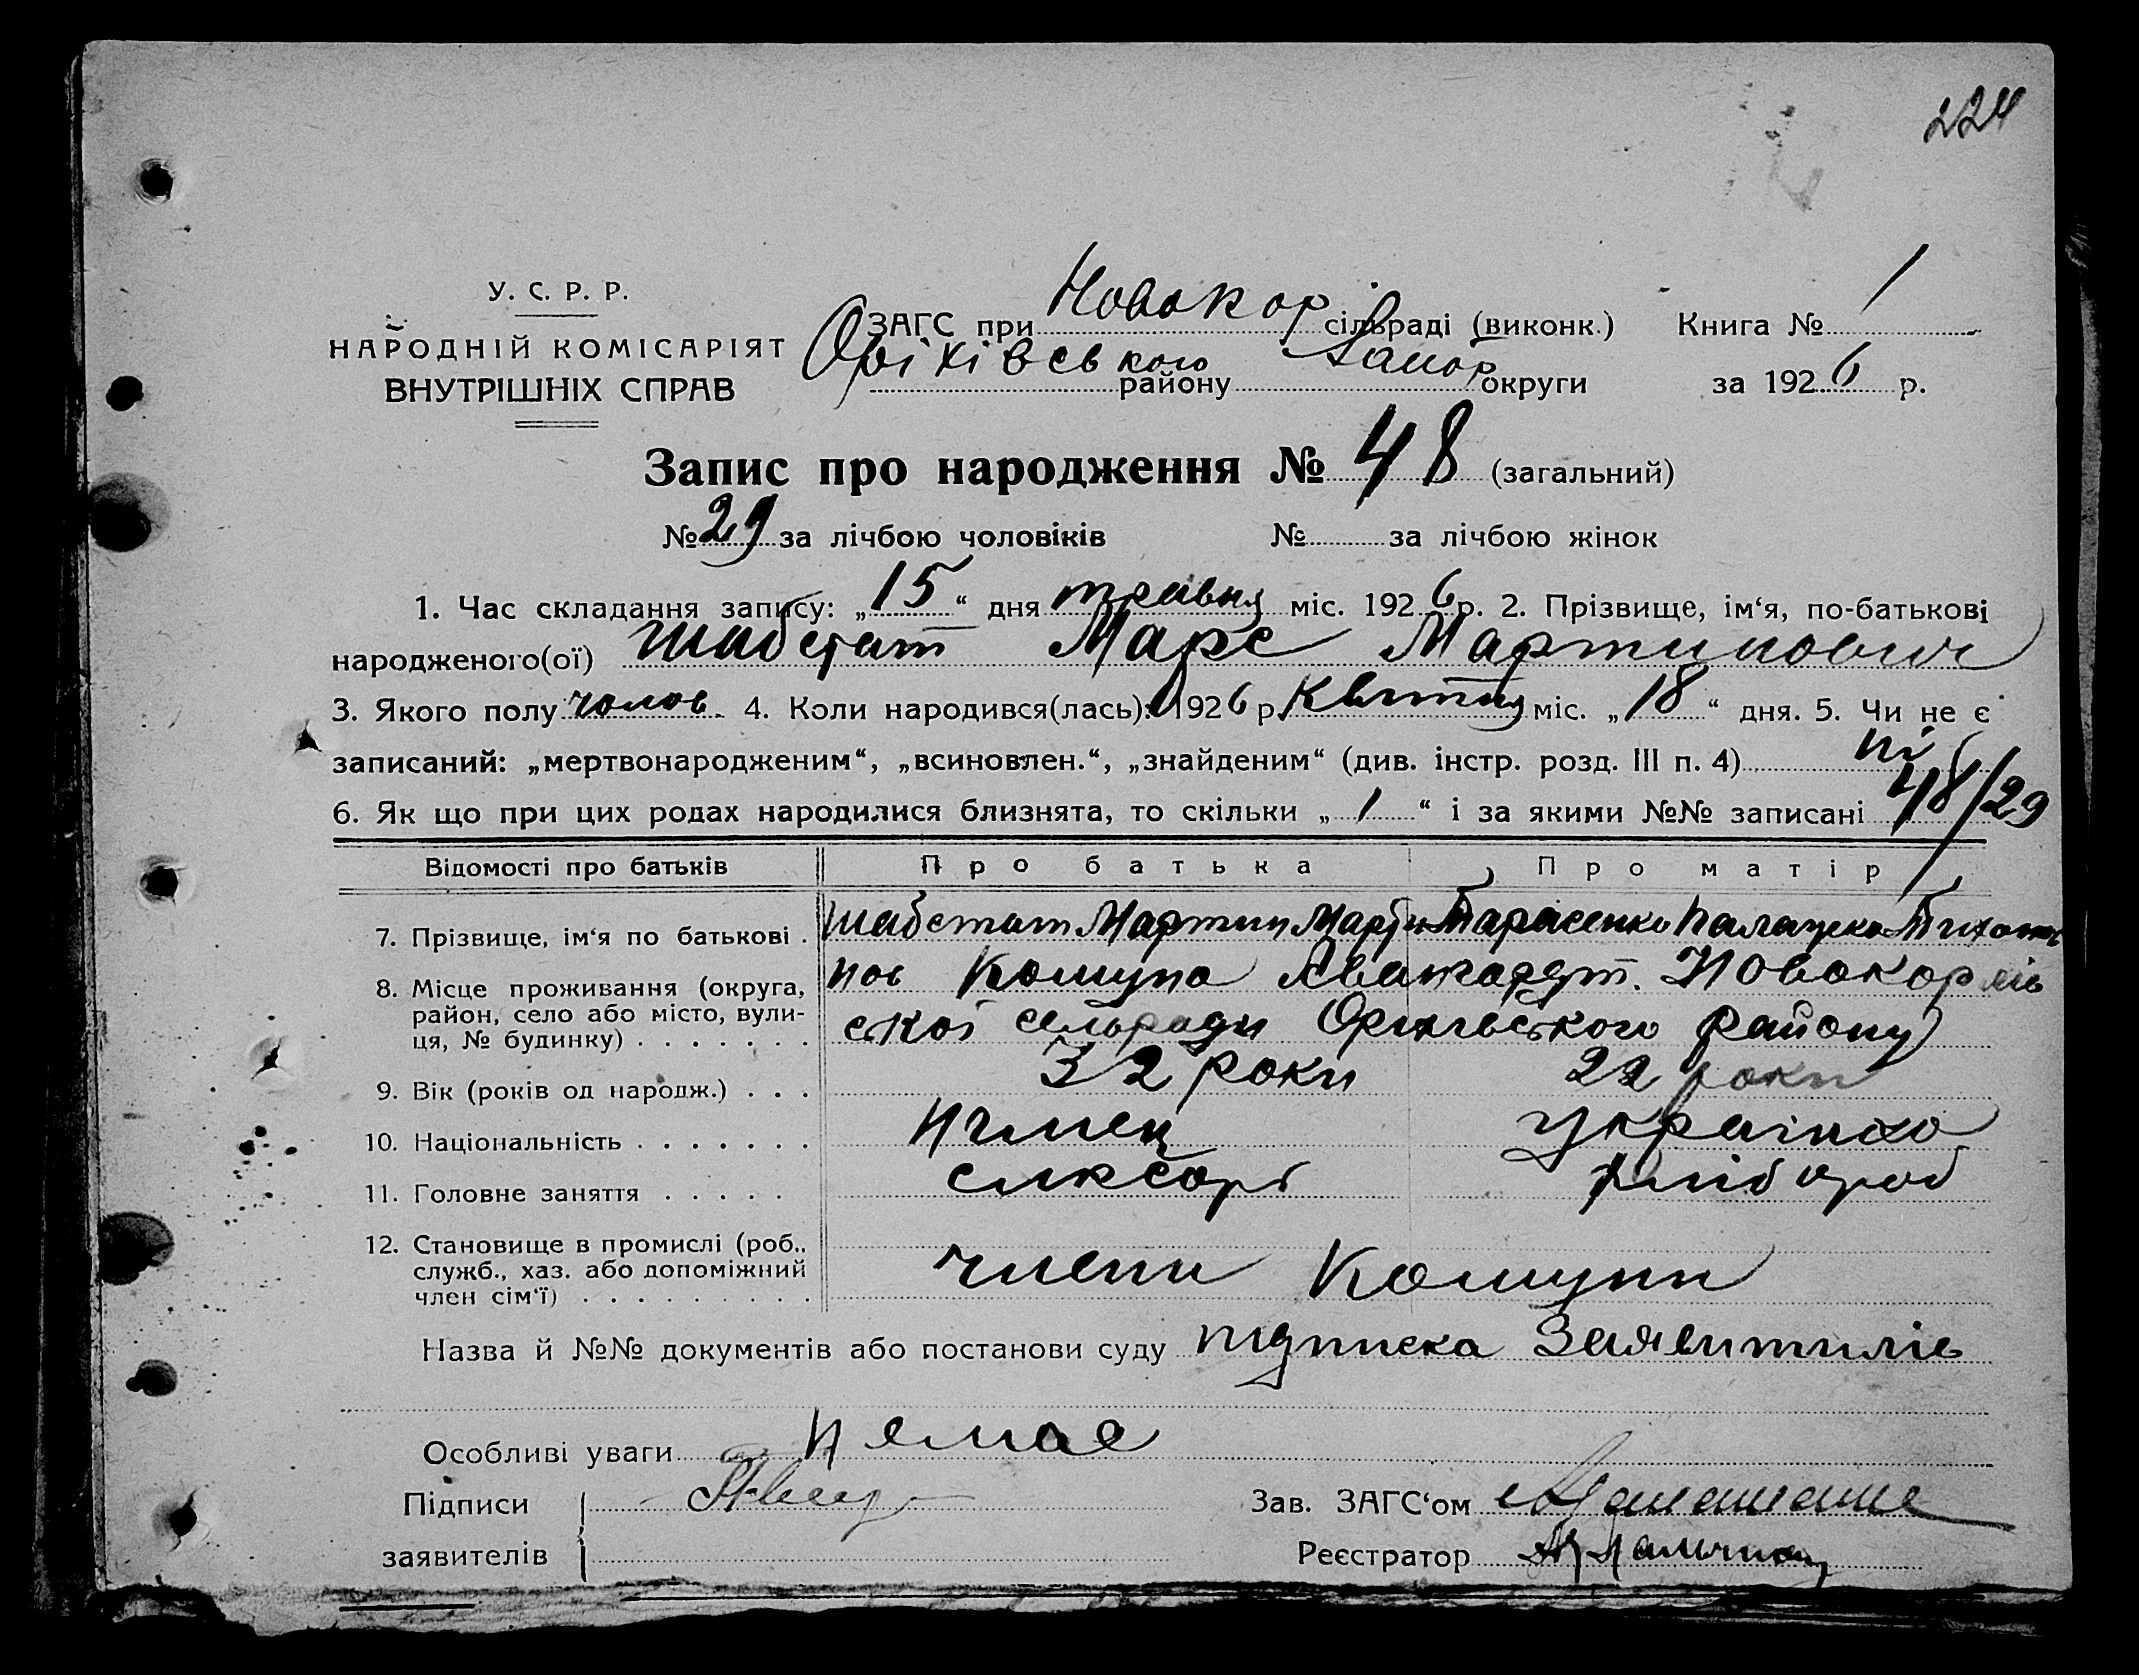 224
У. С. Р. Р.
НАРОДНІЙ КОМІСАРІЯТ
ВНУТРІШНІХ СПРАВ
ЗАГС при Новокор сільраді (виконк.) Книга № 1
Оріхівського району Запор округи за 1926 р.
Запис про народження № 48 (загальний)
№ 29 за лічбою чоловіків № за лічбою жінок
1. Час складання запису: „15“ дня травня міс. 1926 р. 2. Прізвище, ім‘я, по-батькові
народженого(ої) Шабстат Марс Мартинович
3. Якого полу чолов. 4. Коли народився(лась): 1926 р. Квітня міс. „18“ дня. 5. Чи не є
записаний: „мертвонародженим“, „всиновлен.“, „знайденим“ (див. інстр. розд. III п. 4) ні
6. Як що при цих родах народилися близнята, то скільки „1“ і за якими №№ записані 48/29
Відомості про батьків Про батька Про матір
7. Прізвище, ім‘я по батькові . Шабстат Мартин Тарасенко
8. Місце проживання (округа, Комуна Авангард Новокорлів
район, село або місто, вули- ської сельради Оріхівського району
ця, № будинку) . . . . . . .
9. Вік (років од народж.) . . . 32 роки 22 роки
10. Національність . . . . . . . німец українка
11. Головне заняття . . . . . хлібороб
12. Становище в промислі (роб.,
служб., хаз. або допоміжний члени Комуни
член сім‘ї) . . . . . . . . .
Назва й №№ документів або постанови суду підписка Заявителів
Особливі уваги немає
Підписи Зав. ЗАГС‘ом
заявителів Реєстратор